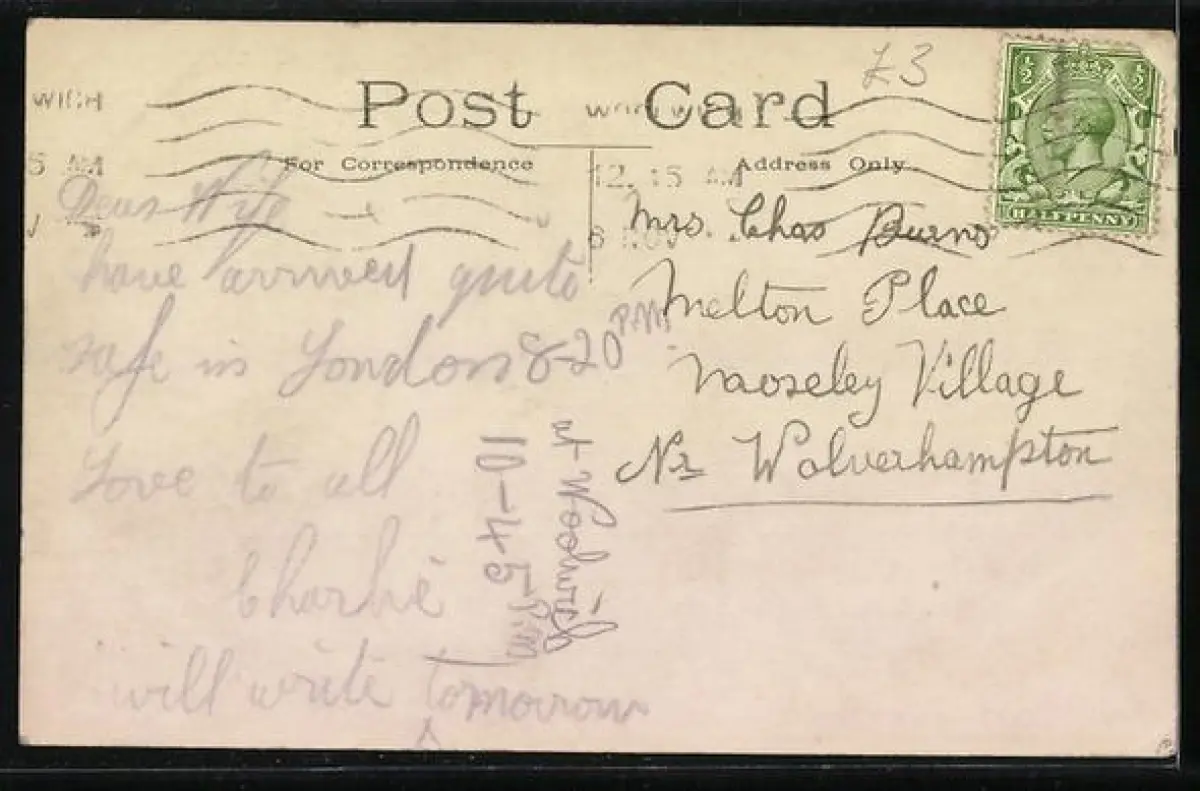 £3
Post Card
For Correspondence
Address Only
WICH
5 AM
12.15 AM
8 NOV
½ ½
HALFPENNY
Dear Wife
have arrived quite
safe in London 8-20 PM
Love to all
Charlie
will write tomorrow
at Woolwich
10-45 P.M
Mrs. Chas Burns
Melton Place
Mooseley Village
Nr Wolverhampton